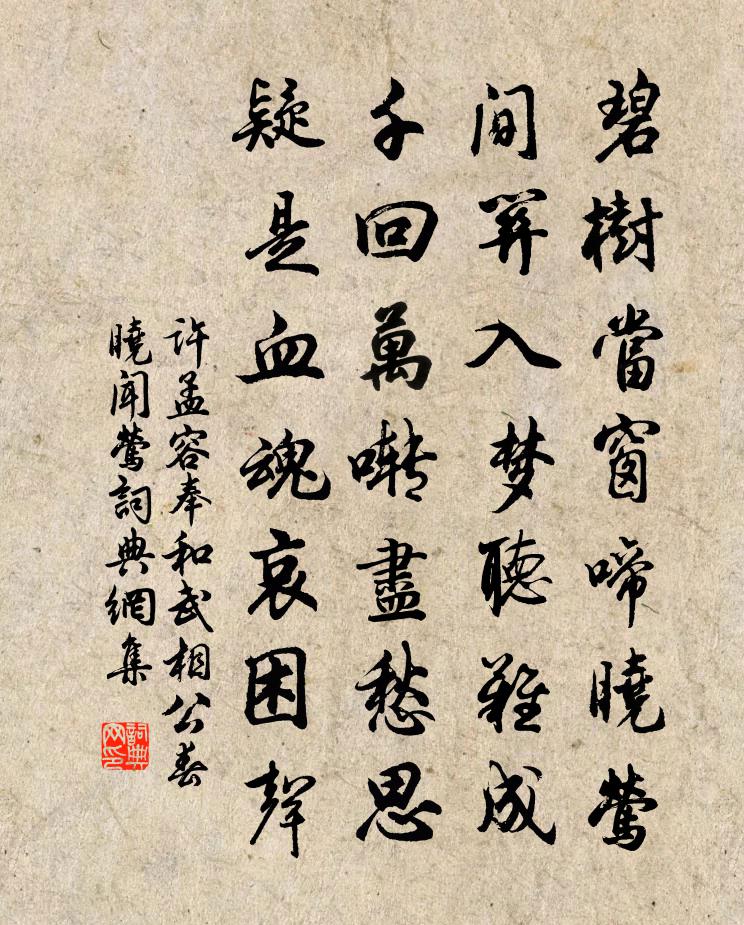 碧樹當窗啼曉鶯
間關入梦聽難成
千回萬囀盡愁思
疑是血魂哀困聲
许孟容奉和武相公春
曉聞鶯詞典網集
詞典网印